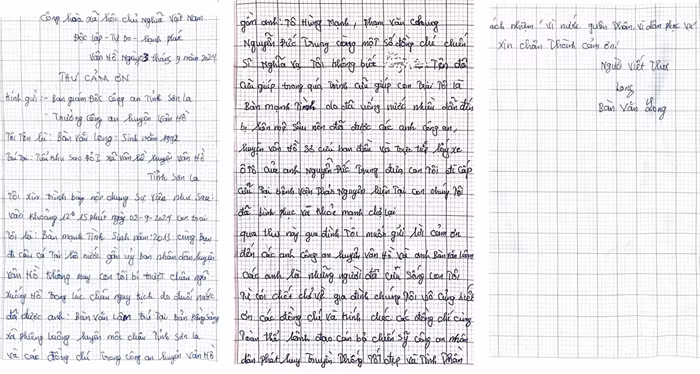 Cộng hòa xã hội chủ nghĩa Việt Nam
Độc lập - Tự Do - Hạnh phúc
Vân Hồ ngày 3 tháng 9 năm 2024
THƯ CẢM ƠN
Kính gửi: - Ban giám Đốc Công an Tỉnh Sơn La
- Trưởng Công an huyện Vân Hồ
Tôi Tên là: Bàn Văn Long: Sinh năm 1992
Trú tại: Tiểu khu Sao Đỏ I xã Vân hồ huyện Vân Hồ
Tỉnh Sơn La
Tôi Xin Trình bày nội dung Sự Việc như Sau:
Vào khoảng 12h 15 phút ngày 02-9-2024 con trai
Tôi là: Bàn mạnh Tình Sinh năm: 2013 cùng Bạn
đi câu cá Tại hồ nước gần ủy ban nhân dân huyện
Vân Hồ không may con tôi bị trượt chân ngã
xuống Hồ Trong lúc cháu nguy kịch do đuối nước
đã được anh: Bàn Văn Lâm Trú Tại Bản
xã phiêng luông huyện mộc châu Tỉnh Sơn La
Và các đồng chí Trong công an huyện Vân Hồ
gồm anh: Tô Hùng Mạnh, Phạm Văn Chung
Nguyễn Đức Trung cùng một Số đồng chí chiến
Sĩ Nghĩa Vụ Tôi không biết Tên đã
cứu giúp trong quá Trình cứu giúp con Trai Tôi là
Bàn mạnh Tình do đã uống nước nhiều dẫn đến
bị hôn mê Sâu nên đã được các anh công an
huyện Vân Hồ Sơ cứu ban đầu và Trực tiếp lấy xe
ô Tô của anh Nguyễn Đức Trung đưa con Tôi đi cấp
cứu Tại bệnh viện Thảo Nguyên hiện Tại con chúng Tôi
đã bình phục và khỏe mạnh chở lại
qua thư này gia đình Tôi muốn gửi lời cảm ơn
đến các anh công an huyện Vân Hồ và anh Bàn Văn Lâm
các anh là những người đã cứu Sống con Tôi
từ cõi chết chở về gia đình chúng Tôi vô cùng biết
ơn các đồng chí và kính chúc các đồng chí cùng
Toàn thể lãnh đạo cán bộ chiến Sỹ công an nhân
dân phát huy Truyền Thống Tốt đẹp và Tinh Thần
ách nhiệm! Vì nước quên Thân, Vì dân phục vụ
xin chân Thành cảm ơn!
Người Viết Thư
Long
Bàn Văn Long